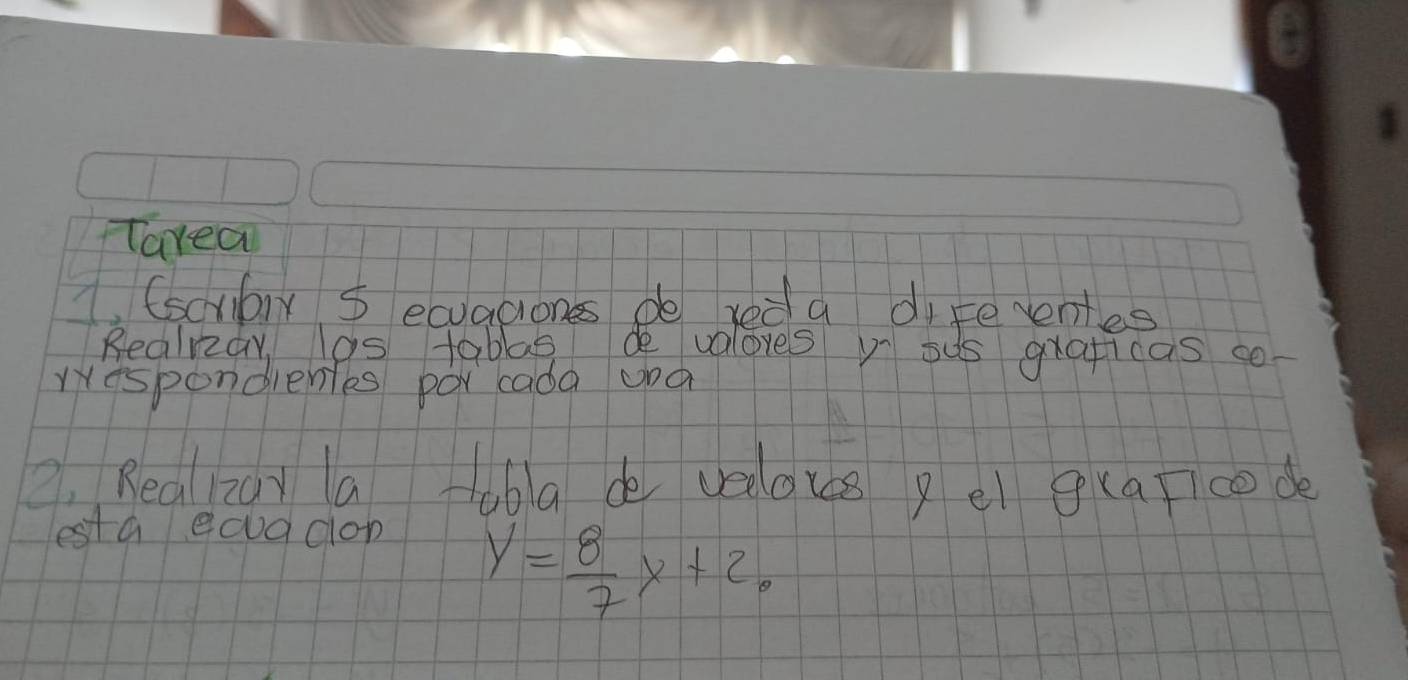 Tarea
1. Escribir 5 ecuaciones de recta diferentes
Realizar las tablas de valores y sus graficas co-
rrespondientes por cada una
2. Realizar la tabla de valores y el grafico de
esta ecuacion
y = 8/7 x + 2.